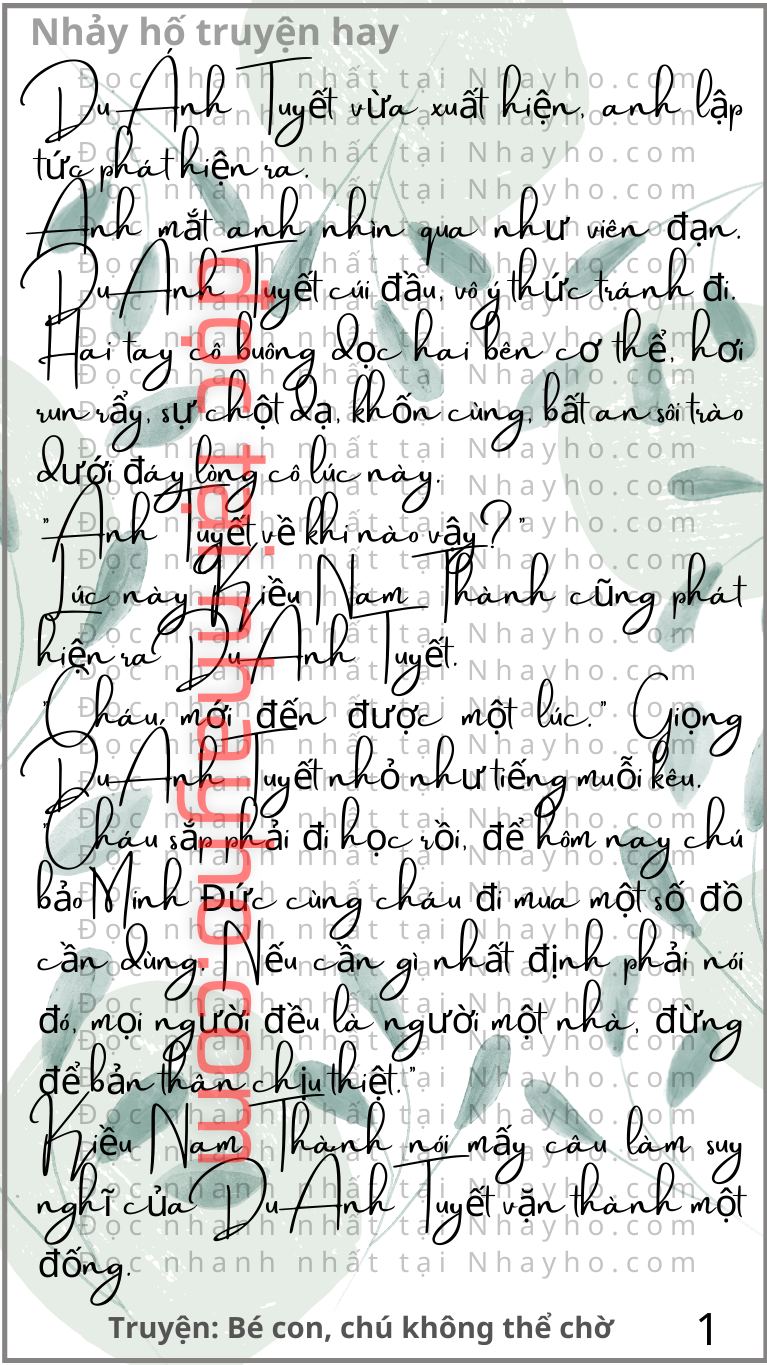 Nhảy hố truyện hay
Du Ánh Tuyết vừa xuất hiện, anh lập
tức phát hiện ra.
Ánh mắt anh nhìn qua như viên đạn.
Du Ánh Tuyết cúi đầu, vô ý thức tránh đi.
Hai tay cô buông dọc hai bên cơ thể, hơi
run rẩy, sự chột dạ, khốn cùng, bất an sôi trào
dưới đáy lòng cô lúc này.
"Ánh Tuyết về khi nào vậy?"
Lúc này Kiều Nam Thành cũng phát
hiện ra Du Ánh Tuyết.
"Cháu, mới đến được một lúc." Giọng
Du Ánh Tuyết nhỏ như tiếng muỗi kêu.
"Cháu sắp phải đi học rồi, để hôm nay chú
bảo Minh Đức cùng cháu đi mua một số đồ
cần dùng. Nếu cần gì nhất định phải nói
đó, mọi người đều là người một nhà, đừng
để bản thân chịu thiệt."
Kiều Nam Thành nói mấy câu làm suy
nghĩ của Du Ánh Tuyết vặn thành một
đống.
đọc tại nhayho.com
Đọc nhanh nhất tại Nhayho.com
Truyện: Bé con, chú không thể chờ
1